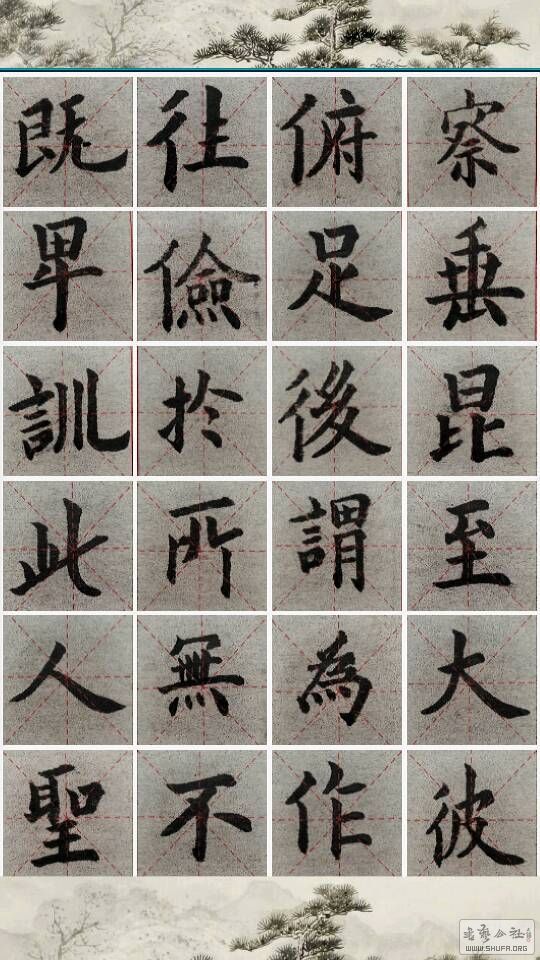 既往俯察
卑儉足垂
訓於後昆
此所謂至
人無為大
聖不作彼
WWW.SHUFA.ORG